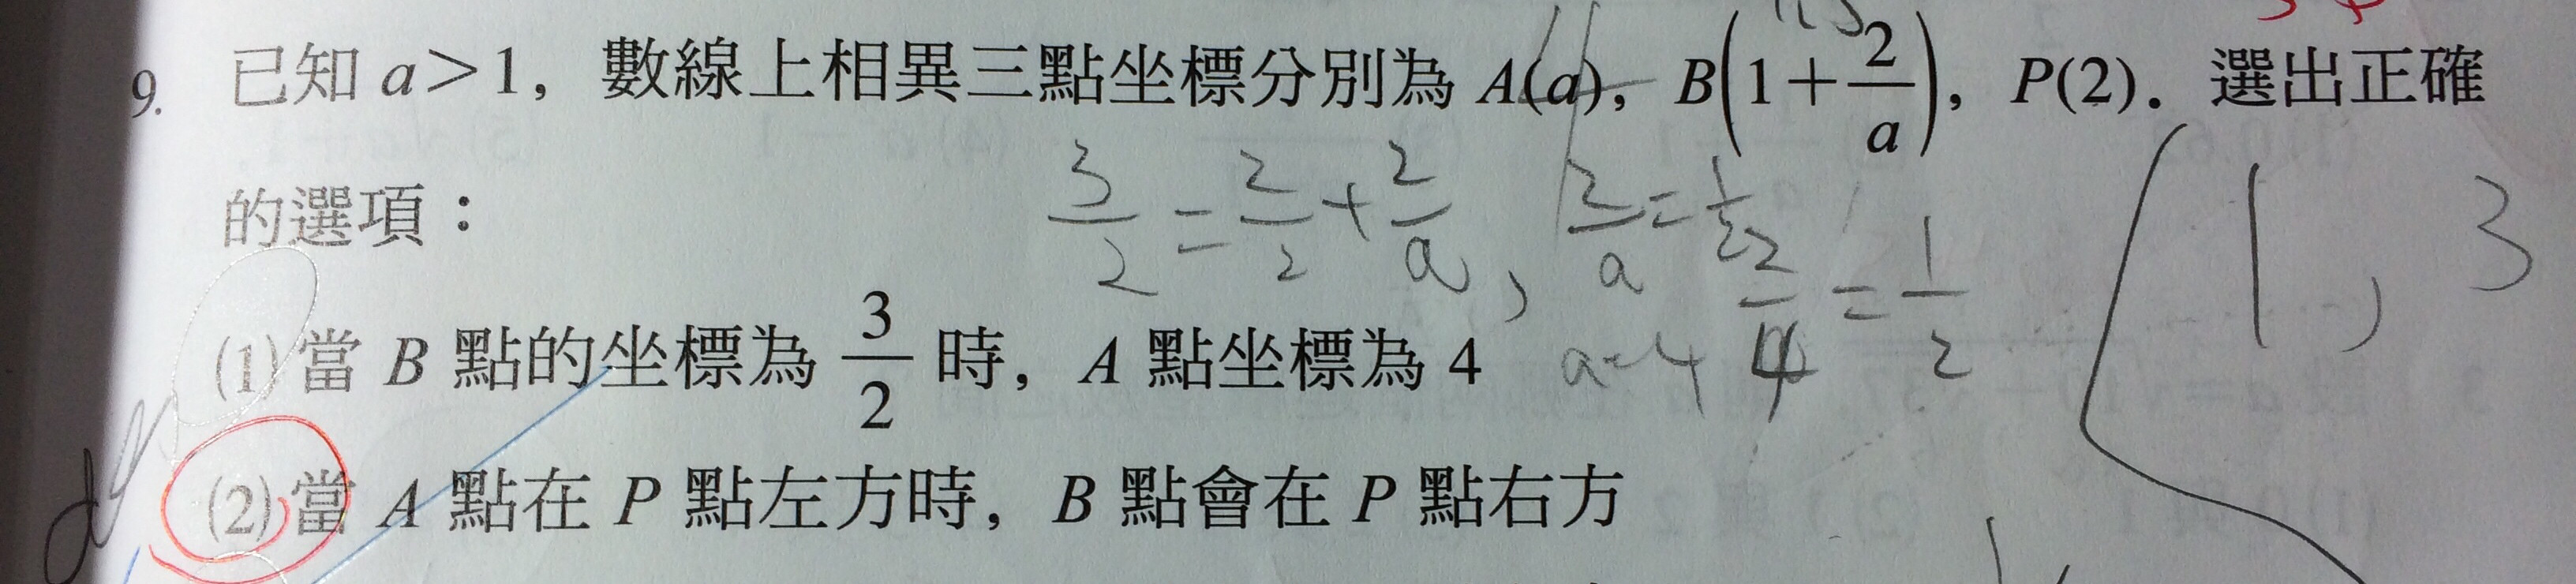 9. 已知 a>1，數線上相異三點坐標分別為 A(a)，B(1+2/a)，P(2)．選出正確
的選項：
3/2=2/2+2/a, 2/a=1/2
2/4=1/2
1, 3
(1)當 B 點的坐標為 3/2 時，A 點坐標為 4
a=4
(2)當 A 點在 P 點左方時，B 點會在 P 點右方